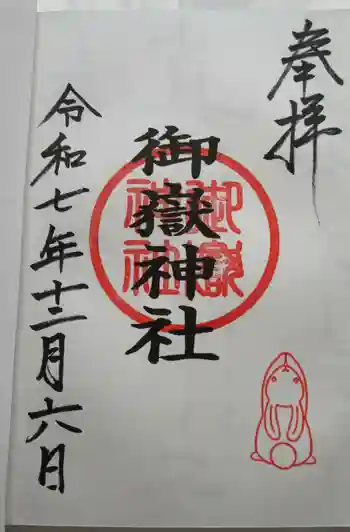 奉拝
御嶽神社
御嶽神社
令和七年十二月六日